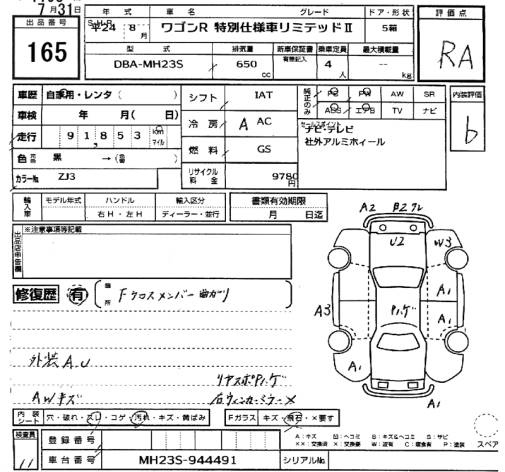 7月31日
出品番号
165
年式
平24 8月
車名
ワゴンR 特別仕様車リミテッドⅡ
グレード
ドア・形状
5箱
評価点
RA
型式
DBA-MH23S
排気量
650
cc
新車保証書
有無記入
乗車定員
4
人
最大積載量
--
kg
車歴 自家用・レンタ（ ）
車検 年 月( 日)
走行 91,853 km マイル
色 元色 黒 → (替色 )
カラーNo. ZJ3
シフト IAT
冷房 A AC
燃料 GS
リサイクル料金 9780円
純正のみ
PS PW AW SR
ABS エアB TV ナビ
セールスポイント
ナビ・テレビ
社外アルミホィール
内装評価
b
輸入車
モデル年式
ハンドル
右H・左H
輸入区分
ディーラー・並行
書類有効期限
月 日迄
出品店申告欄
※注意事項等記載
修復歴 有
箇所
Fクロスメンバー曲がり
外装A.U
AWキズ
リヤスポPハゲ
右ウィンカーミラーX
A2
B2 ワレ
U2
W3
A1
A3
Pハゲ
A1
A1
A1
内装シート
穴・破れ・スレ・コゲ・汚れ・キズ・黄ばみ
Fガラス
キズ・飛石・×要す
検査員
11
登録番号
A：キズ U：ヘコミ B：キズ&ヘコミ S：サビ
XX：交換済 X：交換要 W：波有 C：腐食有 P：塗装
スペア
車台番号
MH23S-944491
シリアルNo.